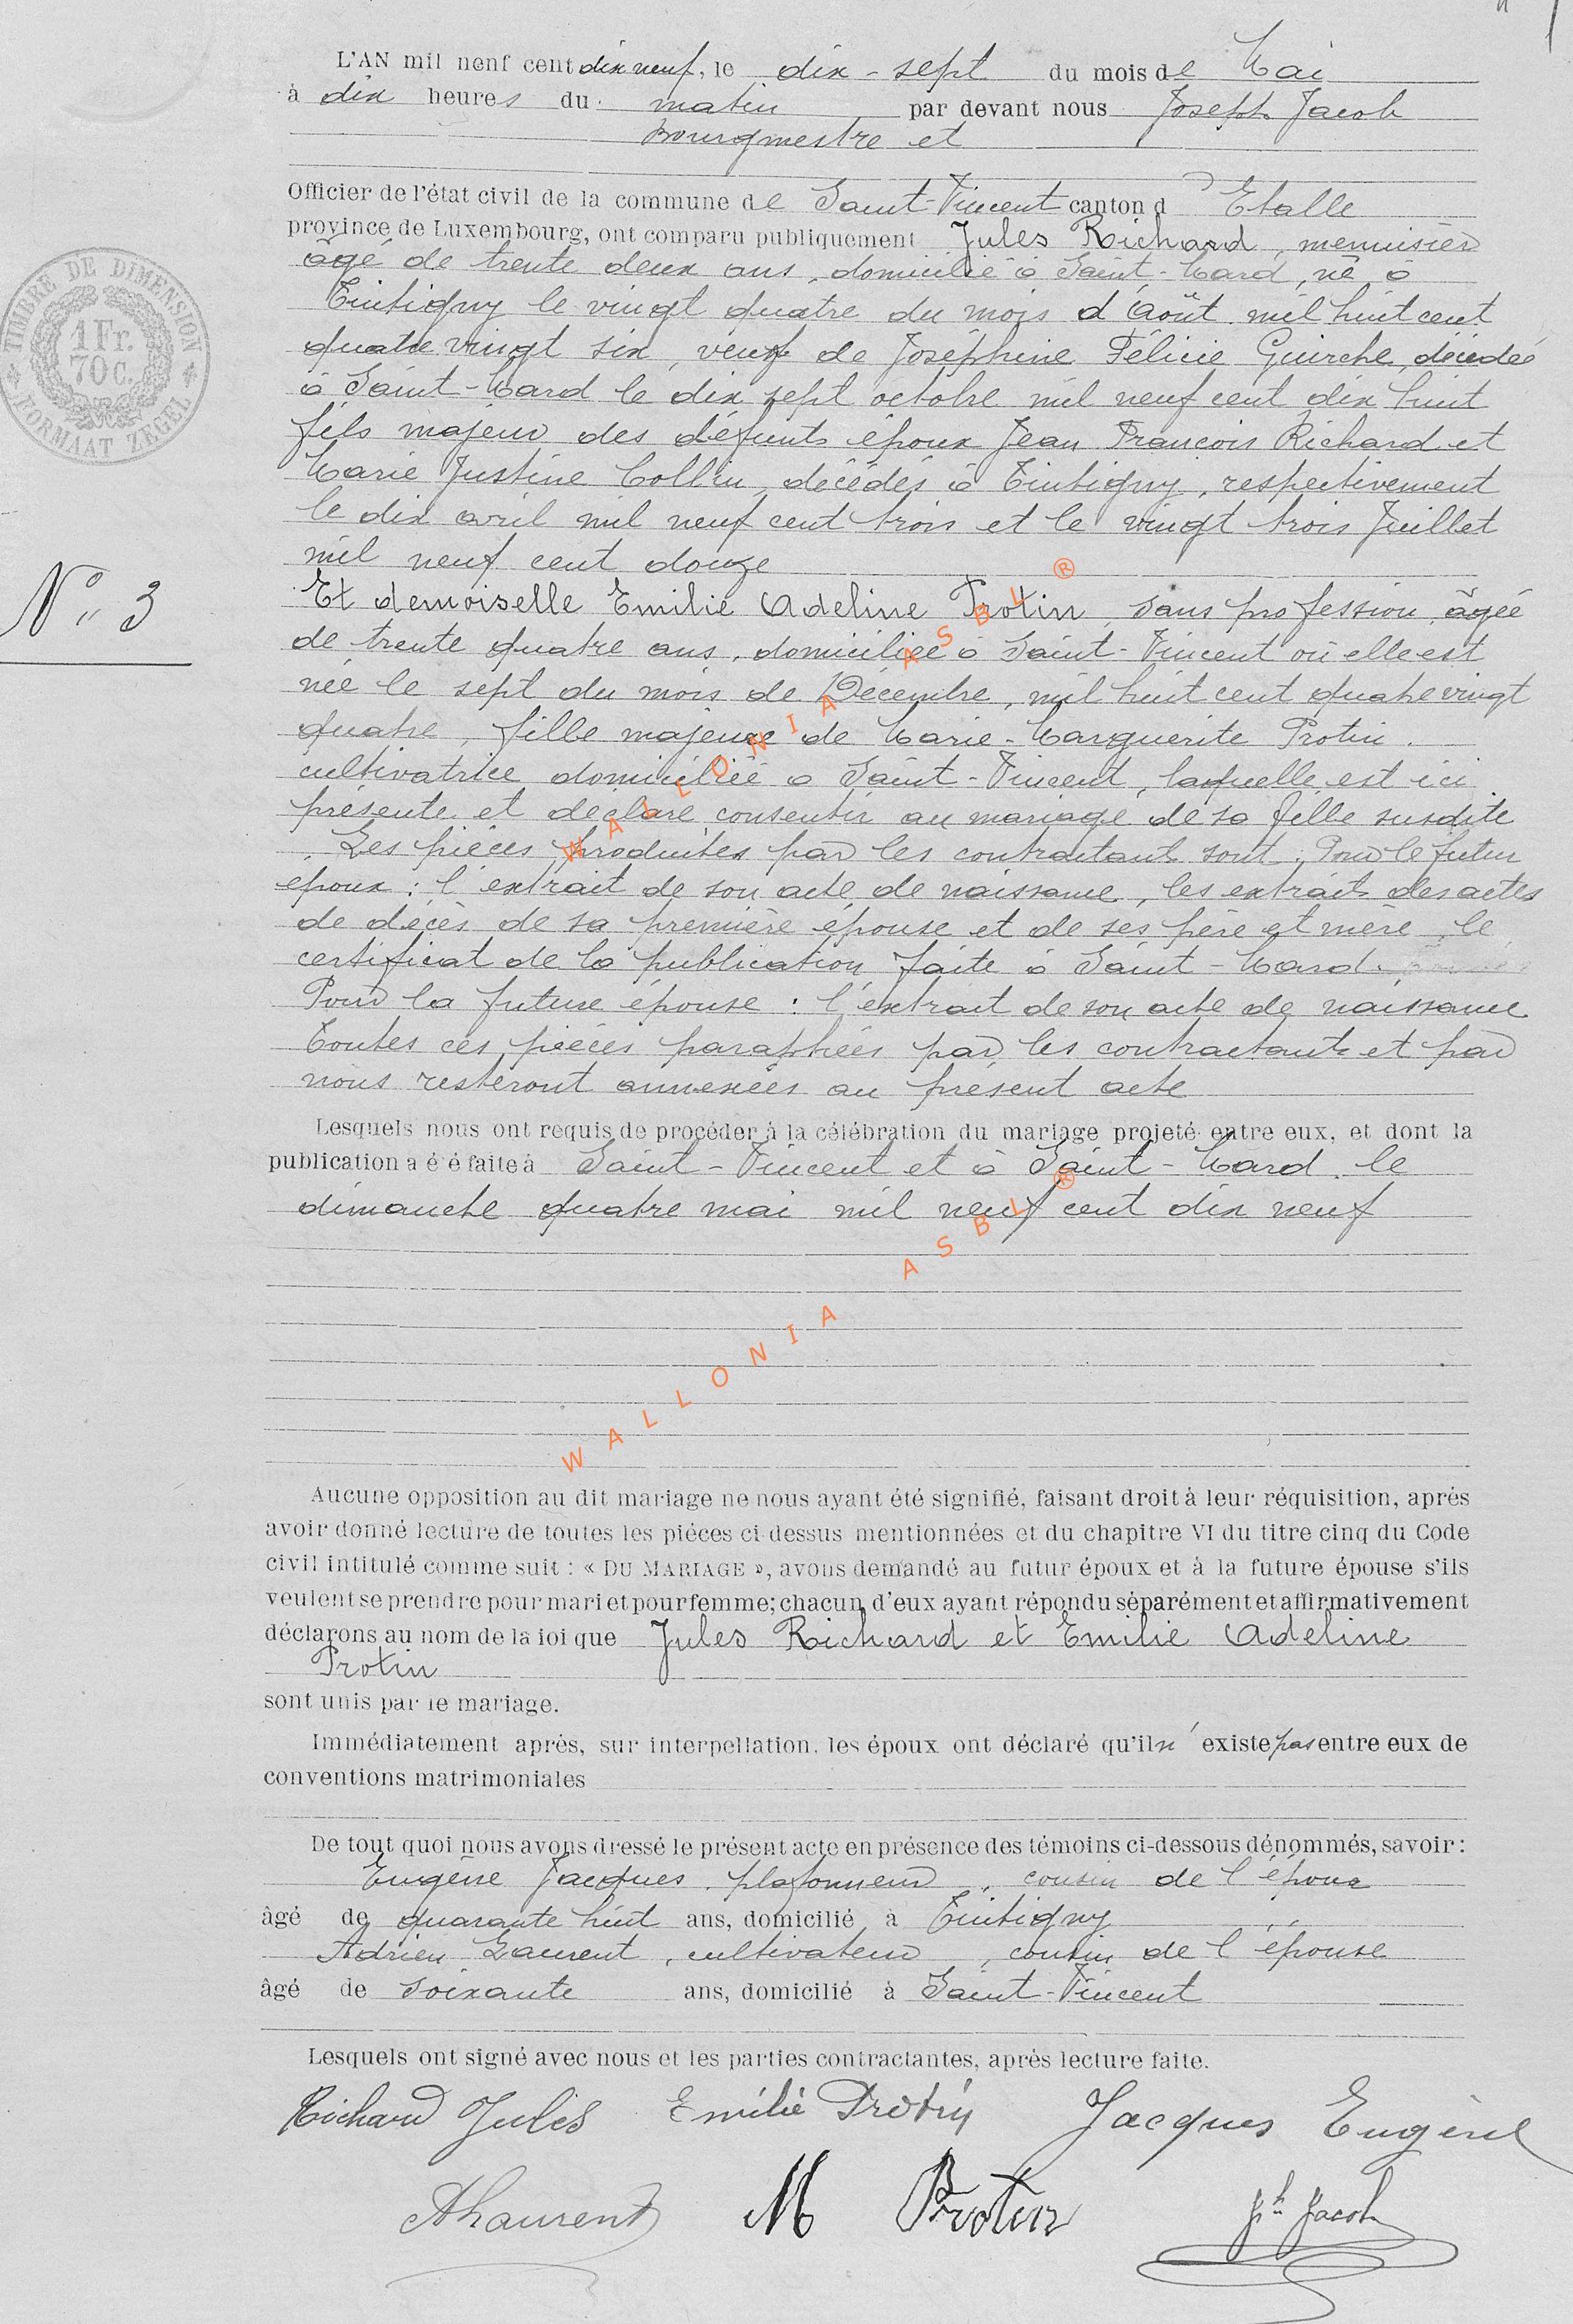 L'AN mil neuf cent dix neuf, le dix-sept du mois de Mai
à dix heures du matin par devant nous Joseph Jacob
Bourgmestre et
Officier de l'état civil de la commune de Saint-Vincent canton d'Etalle
province de Luxembourg, ont comparu publiquement Jules Richard, menuisier
âgé de trente deux ans, domicilié à Saint-Mard, né à
Tintigny le vingt quatre du mois d'Août mil huit cent
quatre vingt six, veuf de Joséphine Félicie Guirche, décédée
à Saint-Mard le dix sept octobre mil neuf cent dix huit
fils majeur des défunts époux Jean François Richard et
Marie Justine Collin, décédés à Tintigny, respectivement
le dix avril mil neuf cent trois et le vingt trois Juillet
mil neuf cent douze
N° 3
Et demoiselle Emilie Adeline Protin, sans profession, âgée
de trente quatre ans, domiciliée à Saint-Vincent où elle est
née le sept du mois de Décembre, mil huit cent quatre vingt
quatre, fille majeure de Marie-Marguerite Protin.
cultivatrice domiciliée à Saint-Vincent, laquelle est ici
présente et déclare consentir au mariage de sa fille susdite
Les pièces produites par les contractants sont : Pour le futur
époux : l'extrait de son acte de naissance, les extraits des actes
de décès de sa première épouse et de ses père et mère, le
certificat de la publication faite à Saint-Mard.
Pour la future épouse : l'extrait de son acte de naissance
Toutes ces pièces paraphées par les contractants et par
nous resteront annexées au présent acte
Lesquels nous ont requis de procéder à la célébration du mariage projeté entre eux, et dont la
publication a é é faite à Saint-Vincent et à Saint-Mard le
dimanche quatre mai mil neuf cent dix neuf
Aucune opposition au dit mariage ne nous ayant été signifié, faisant droit à leur réquisition, après
avoir donné lecture de toutes les pièces ci dessus mentionnées et du chapitre VI du titre cinq du Code
civil intitulé comme suit : « DU MARIAGE », avons demandé au futur époux et à la future épouse s'ils
veulent se prendre pour mari et pour femme; chacun d'eux ayant répondu séparément et affirmativement
déclarons au nom de la loi que Jules Richard et Emilie Adeline
Protin
sont unis par le mariage.
Immédiatement après, sur interpellation, les époux ont déclaré qu'il n'existe pas entre eux de
conventions matrimoniales
De tout quoi nous avons dressé le présent acte en présence des témoins ci-dessous dénommés, savoir :
Eugène Jacques, plafonneur, cousin de l'époux
âgé de quarante huit ans, domicilié à Tintigny
Adrien Laurent, cultivateur, cousin de l'épouse
âgé de soixante ans, domicilié à Saint-Vincent
Lesquels ont signé avec nous et les parties contractantes, après lecture faite.
Richard Jules Emilie Protin Jacques Eugène
A Laurent M Protin Jh Jacob
TIMBRE DE DIMENSION
1 Fr.
70 C.
FORMAAT ZEGEL
WALLONIA ASBL ®
WALLONIA ASBL ®